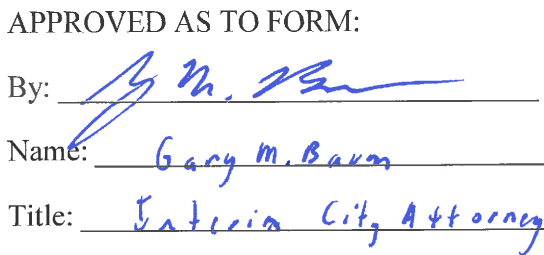 APPROVED AS TO FORM:
By:
Name: Gary M. Baum
Title: Interim City Attorney